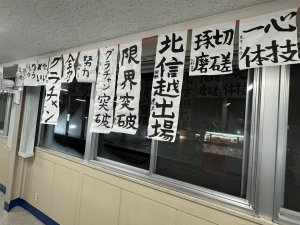 心技
一体
切磋
琢磨
北信越出場
限界突破
グラチャン突破
努力
全力
グラチャン